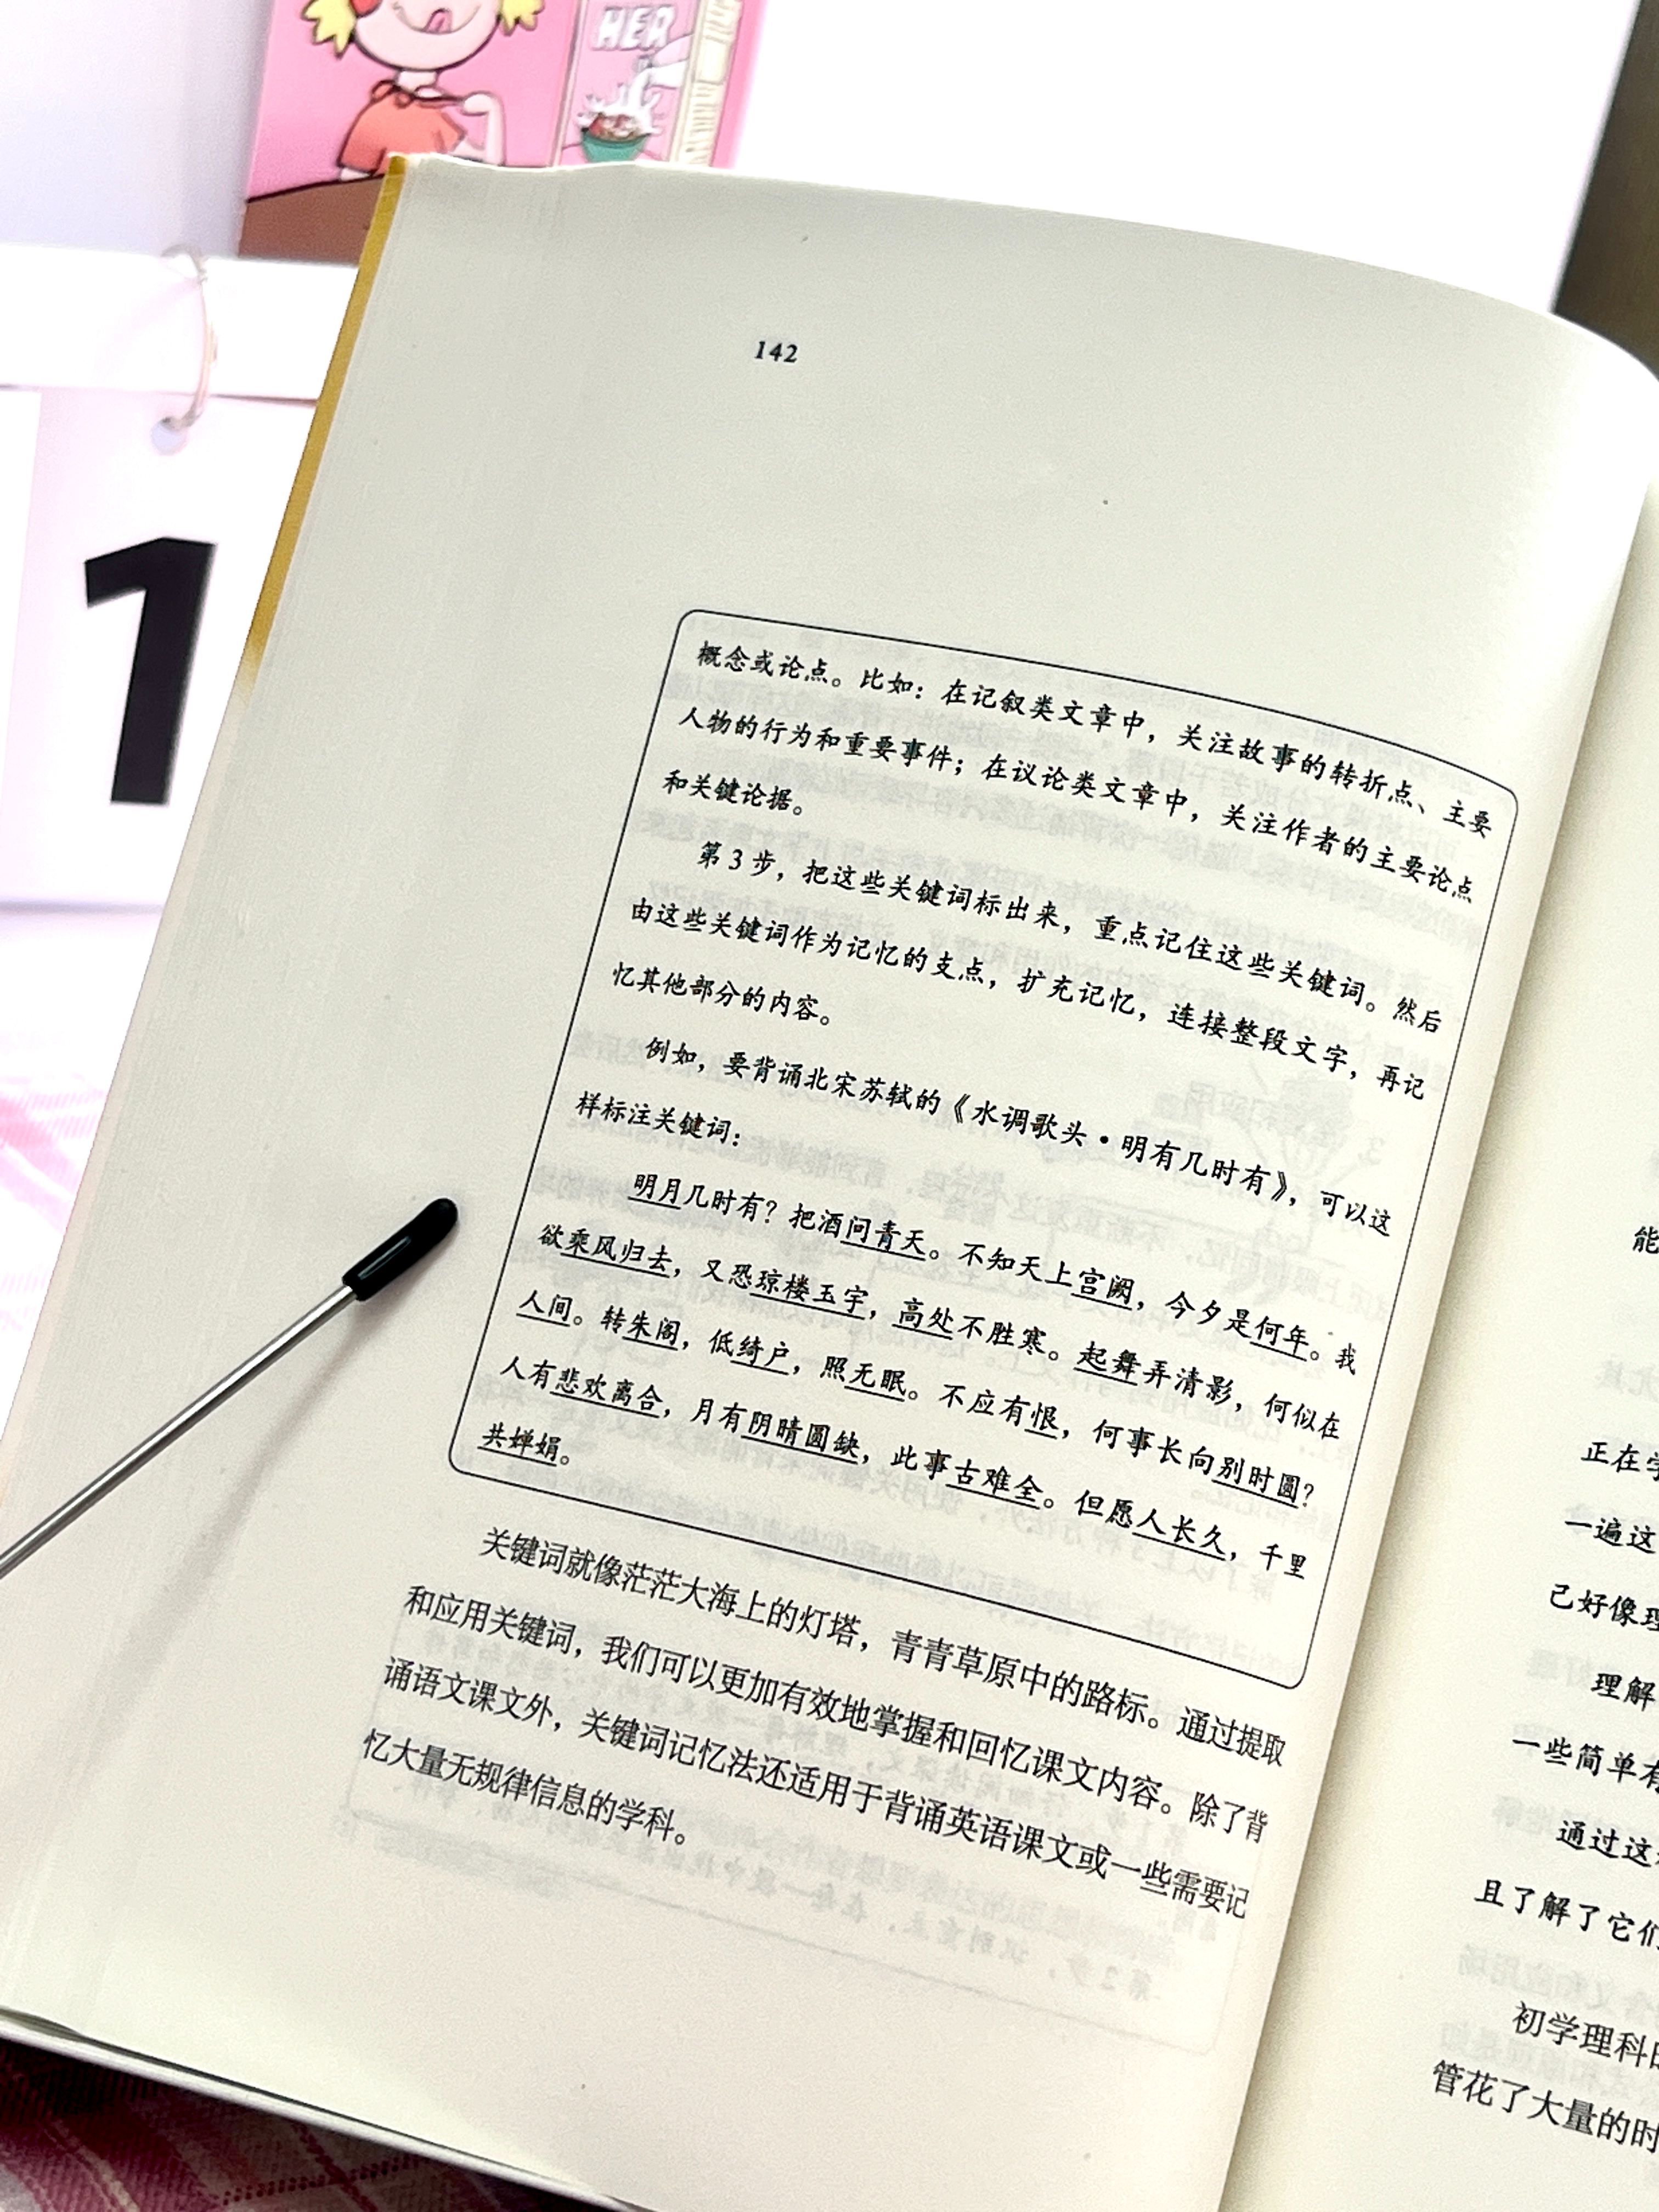 HER
1
142
概念或论点。比如：在记叙类文章中，关注故事的转折点、主要
人物的行为和重要事件；在议论类文章中，关注作者的主要论点
和关键论据。
第3步，把这些关键词标出来，重点记住这些关键词。然后
由这些关键词作为记忆的支点，扩充记忆，连接整段文字，再记
忆其他部分的内容。
例如，要背诵北宋苏轼的《水调歌头·明有几时有》，可以这
样标注关键词：
明月几时有？把酒问青天。不知天上宫阙，今夕是何年。我
欲乘风归去，又恐琼楼玉宇，高处不胜寒。起舞弄清影，何似在
人间。转朱阁，低绮户，照无眠。不应有恨，何事长向别时圆？
人有悲欢离合，月有阴晴圆缺，此事古难全。但愿人长久，千里
共婵娟。
关键词就像茫茫大海上的灯塔，青青草原中的路标。通过提取
和应用关键词，我们可以更加有效地掌握和回忆课文内容。除了背
诵语文课文外，关键词记忆法还适用于背诵英语课文或一些需要记
忆大量无规律信息的学科。
能
正在学
一遍这
己好像理
理解
一些简单有
通过这
且了解了它们
初学理科
管花了大量的时